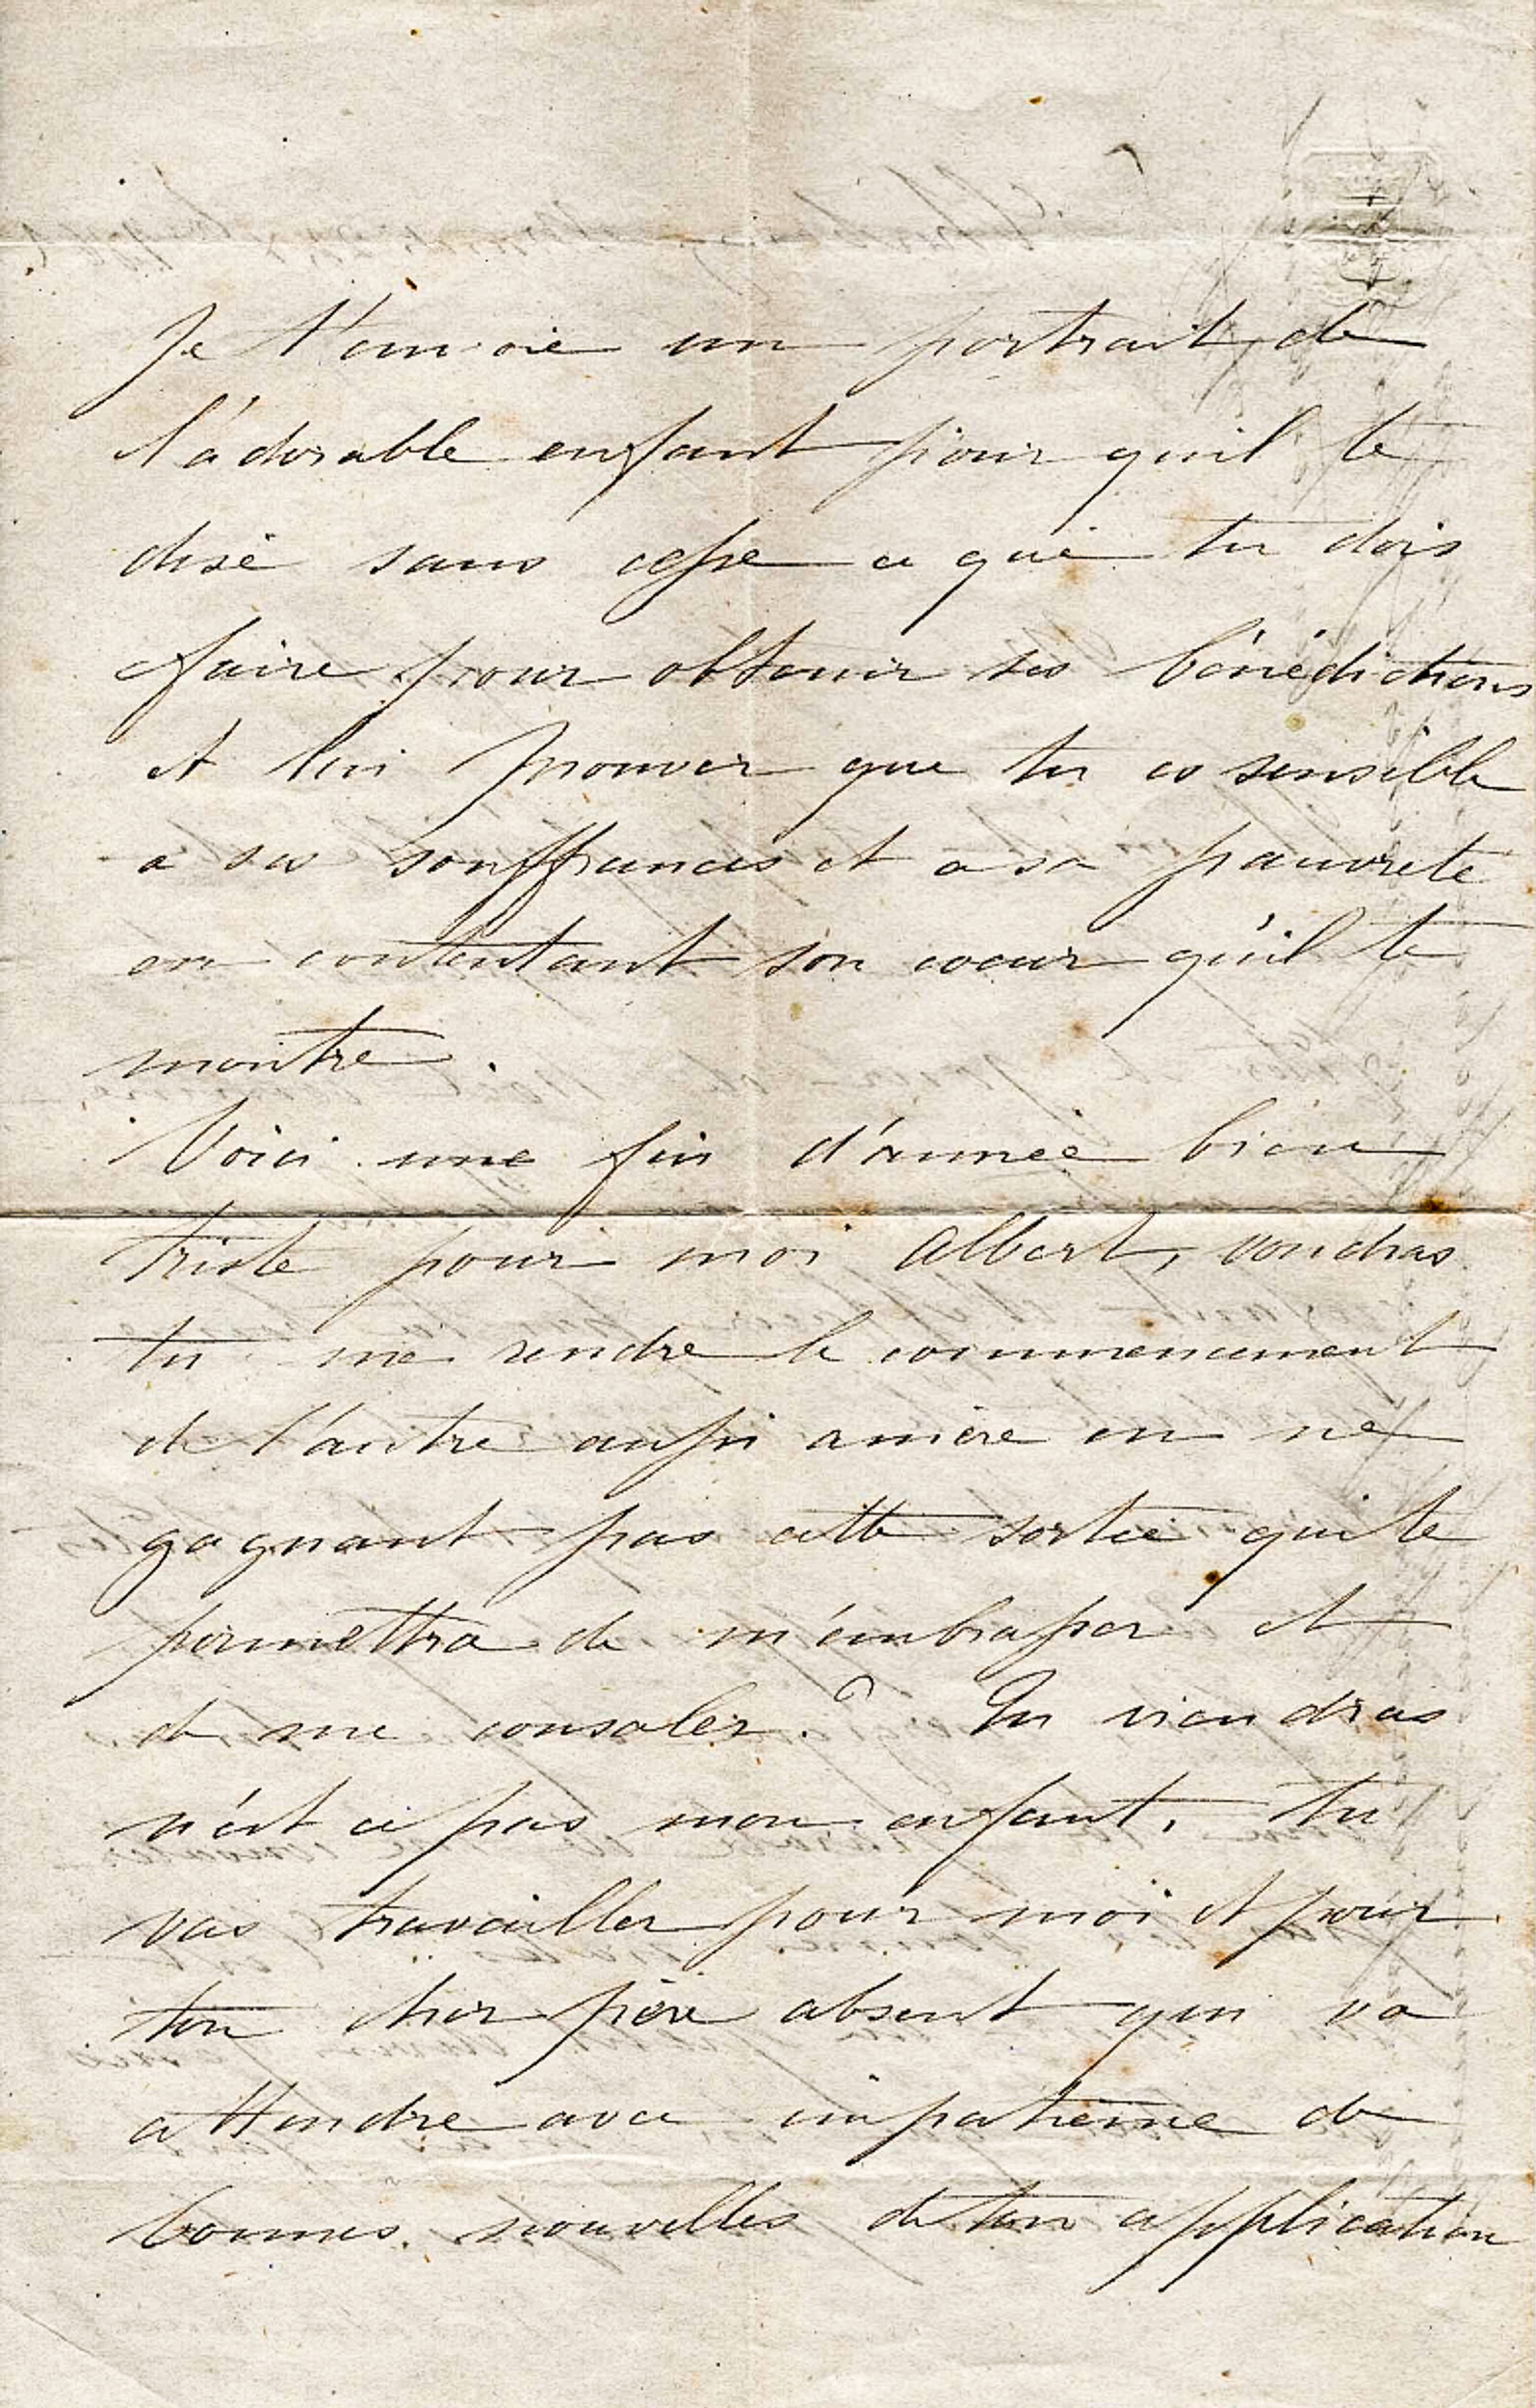 Je t'envoie un portrait de
l'adorable enfant pour qu'il te
dise sans cesse ce que tu dois
faire pour obtenir ses bénédictions
et lui prouver que tu es sensible
a ses souffrances et a sa pauvreté
en contentant son coeur qu'il te
montre.
Voici une fin d'année bien
triste pour moi Albert, voudras
tu me rendre le commencement
de l'autre aussi amère en ne
gagnant pas cette sortie qui te
permettra de m'embrasser et
de me consoler? Tu viendras
n'est ce pas mon enfant. Tu
vas travailler pour moi et pour
ton cher père absent qui va
attendre avec impatience de
bonnes nouvelles de ton application